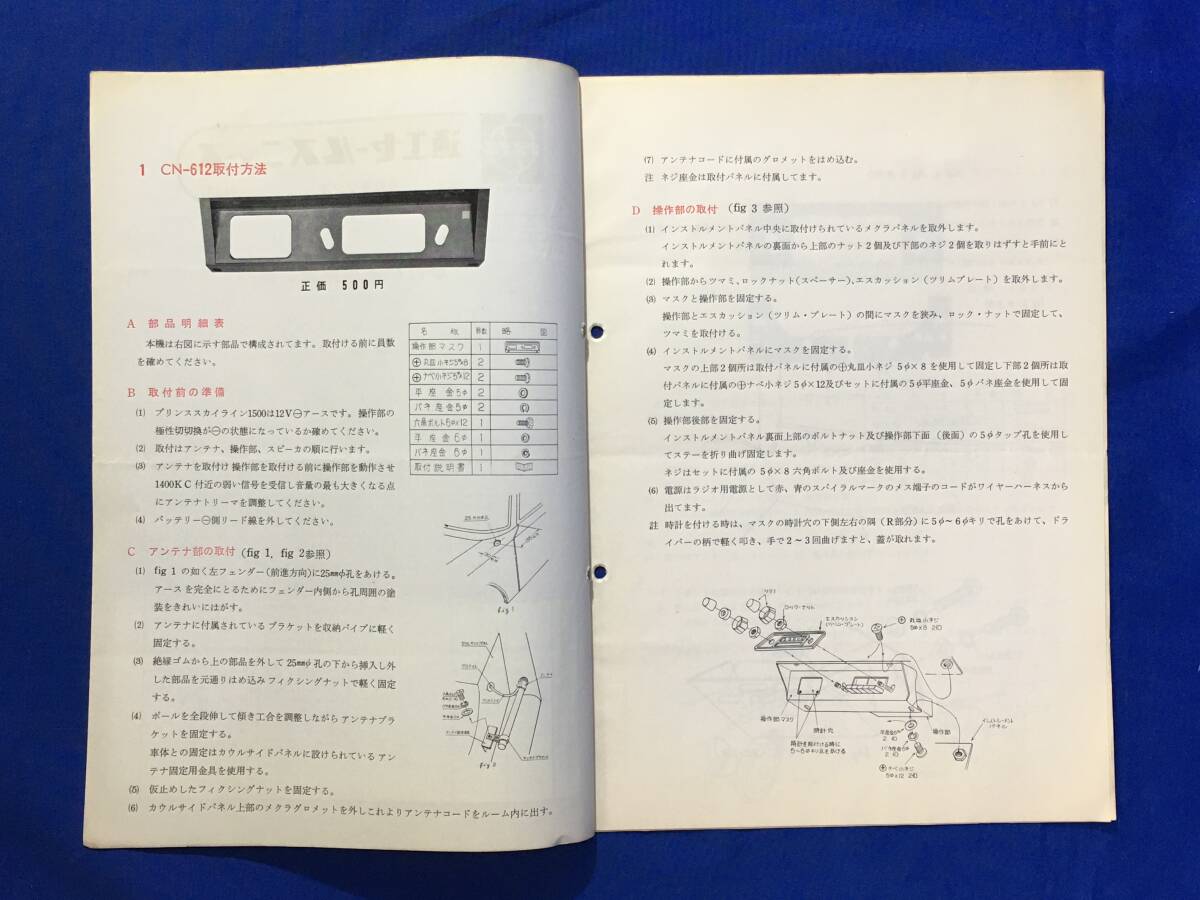 1 CN-612取付方法
正価 500円
A 部品明細表
本機は右図に示す部品で構成されてます。取付ける前に員数
を確めてください。
B 取付前の準備
(1) プリンススカイライン1500は12V⊖アースです。操作部の
極性切切換が⊖の状態になっているか確めてください。
(2) 取付はアンテナ、操作部、スピーカの順に行います。
(3) アンテナを取付け操作部を取付ける前に操作部を動作させ
1400KC付近の弱い信号を受信し音量の最も大きくなる点
にアンテナトリーマを調整してください。
(4) バッテリー⊖側リード線を外してください。
名称 員数 略図
操作部マスク 1
⊕丸皿小ネジ5φ×8 2
⊕ナベ小ネジ5φ×12 2
平座金5φ 2
バネ座金5φ 2
六角ボルト6φ×12 1
平座金6φ 1
バネ座金6φ 1
取付説明書 1
C アンテナ部の取付 (fig 1, fig 2参照)
(1) fig 1 の如く左フェンダー(前進方向)に25㎜φ孔をあける。
アースを完全にとるためにフェンダー内側から孔周囲の塗
装をきれいにはがす。
(2) アンテナに付属されているブラケットを収納パイプに軽く
固定する。
(3) 絶縁ゴムから上の部品を外して25㎜φ孔の下から挿入し外
した部品を元通りはめ込みフィクシングナットで軽く固定
する。
(4) ポールを全段伸して傾き工合を調整しながらアンテナブラ
ケットを固定する。
車体との固定はカウルサイドパネルに設けられているアン
テナ固定用金具を使用する。
(5) 仮止めしたフィクシングナットを固定する。
(6) カウルサイドパネル上部のメクラグロメットを外しこれよりアンテナコードをルーム内に出す。
fig 1
(7) アンテナコードに付属のグロメットをはめ込む。
注 ネジ座金は取付パネルに付属してます。
D 操作部の取付 (fig 3 参照)
(1) インストルメントパネル中央に取付けられているメクラパネルを取外します。
インストルメントパネルの裏面から上部のナット2個及び下部のネジ2個を取りはずすと手前にと
れます。
(2) 操作部からツマミ、ロックナット(スペーサー)、エスカッション(ツリムプレート)を取外します。
(3) マスクと操作部を固定する。
操作部とエスカッション(ツリム・プレート)の間にマスクを狭み、ロック・ナットで固定して、
ツマミを取付ける。
(4) インストルメントパネルにマスクを固定する。
マスクの上部2個所は取付パネルに付属の⊕丸皿小ネジ5φ×8を使用して固定し下部2個所は取
付パネルに付属の⊕ナベ小ネジ5φ×12及びセットに付属の5φ平座金、5φバネ座金を使用して固
定します。
(5) 操作部後部を固定する。
インストルメントパネル裏面上部のボルトナット及び操作部下面(後面)の5φタップ孔を使用し
てステーを折り曲げ固定します。
ネジはセットに付属の5φ×8六角ボルト及び座金を使用する。
(6) 電源はラジオ用電源として赤、青のスパイラルマークのメス端子のコードがワイヤーハーネスから
出てます。
註 時計を付ける時は、マスクの時計穴の下側左右の隅(R部分)に5φ～6φキリで孔をあけて、ドラ
イバーの柄で軽く叩き、手で2～3回曲げますと、蓋が取れます。
ツマミ
ロック・ナット
エスカッション
(ツリム・プレート)
⊕丸皿小ネジ
5φ×8 2コ
操作部マスク
時計穴
時計を取付ける時に
5～6φキリ孔をあける
平座金5φ
2コ
バネ座金5φ
2コ
操作部
インストルーメント
パネル
⊕ナベ小ネジ
5φ×12 2コ